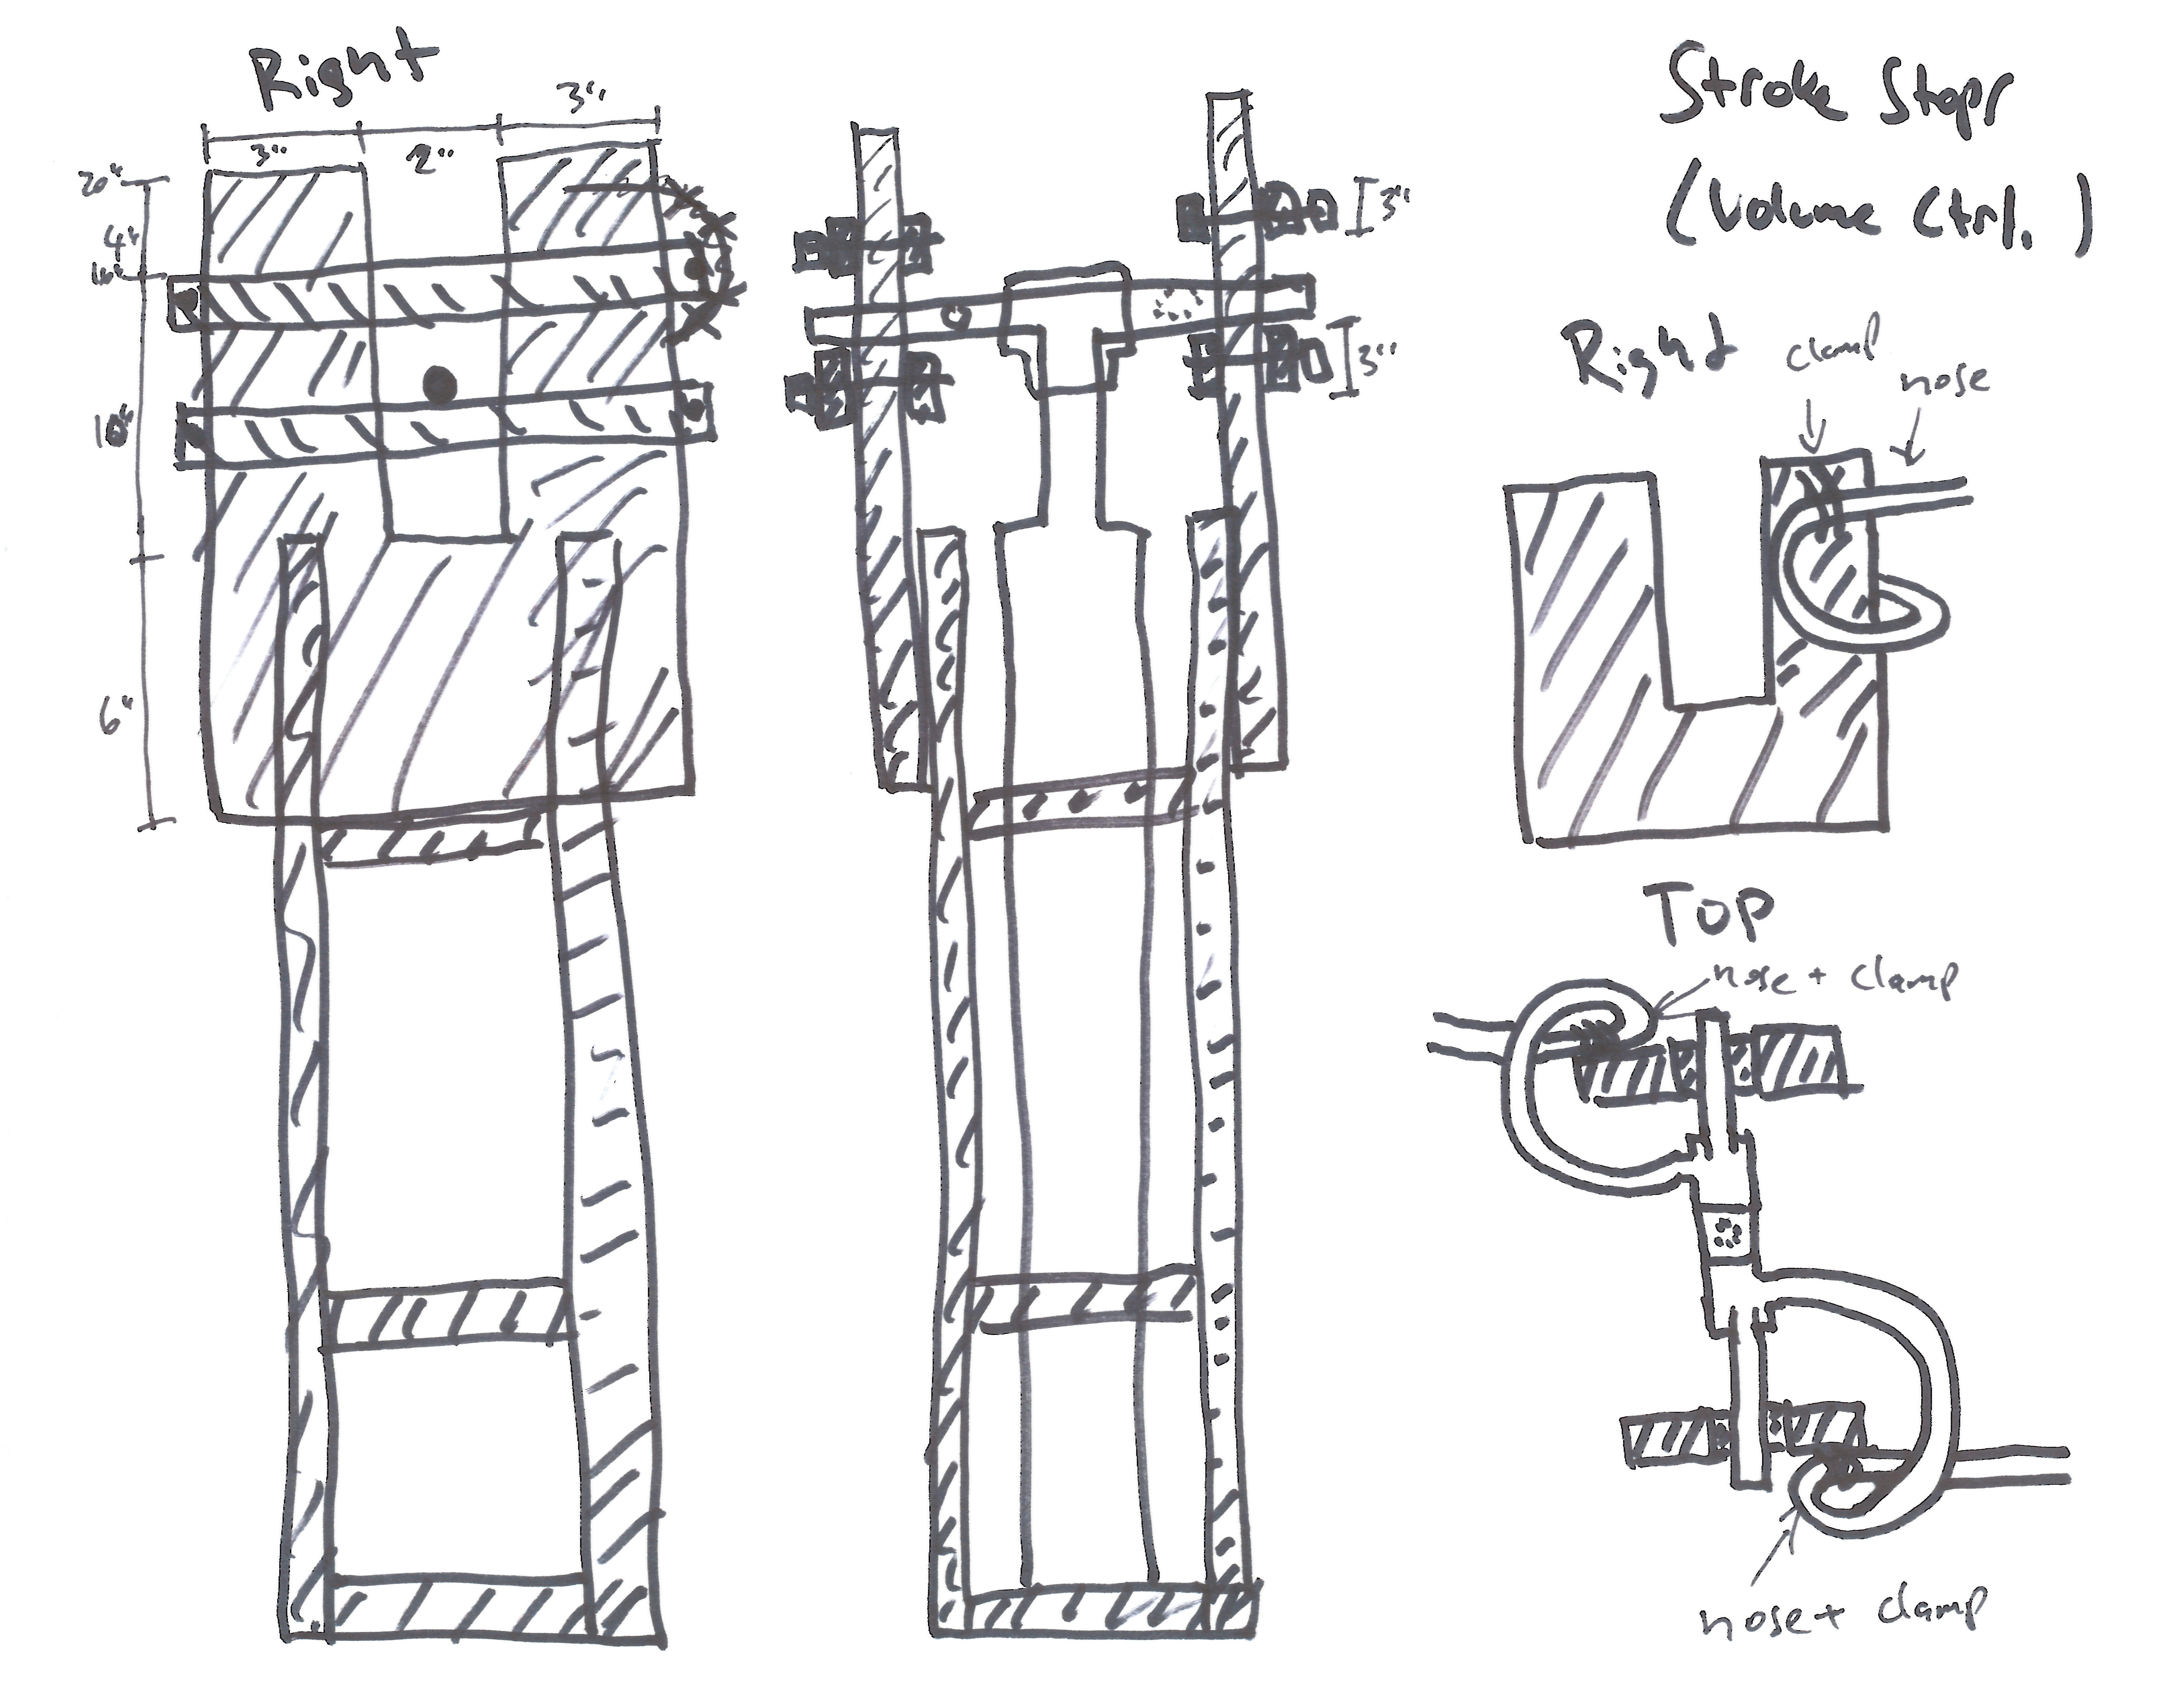 Right
3"
3"
2"
20"
4"
16"
10"
6"
3"
3"
Stroke Stops
(Volume Ctrl.)
Right
clamp
nose
Top
nose + clamp
nose + clamp